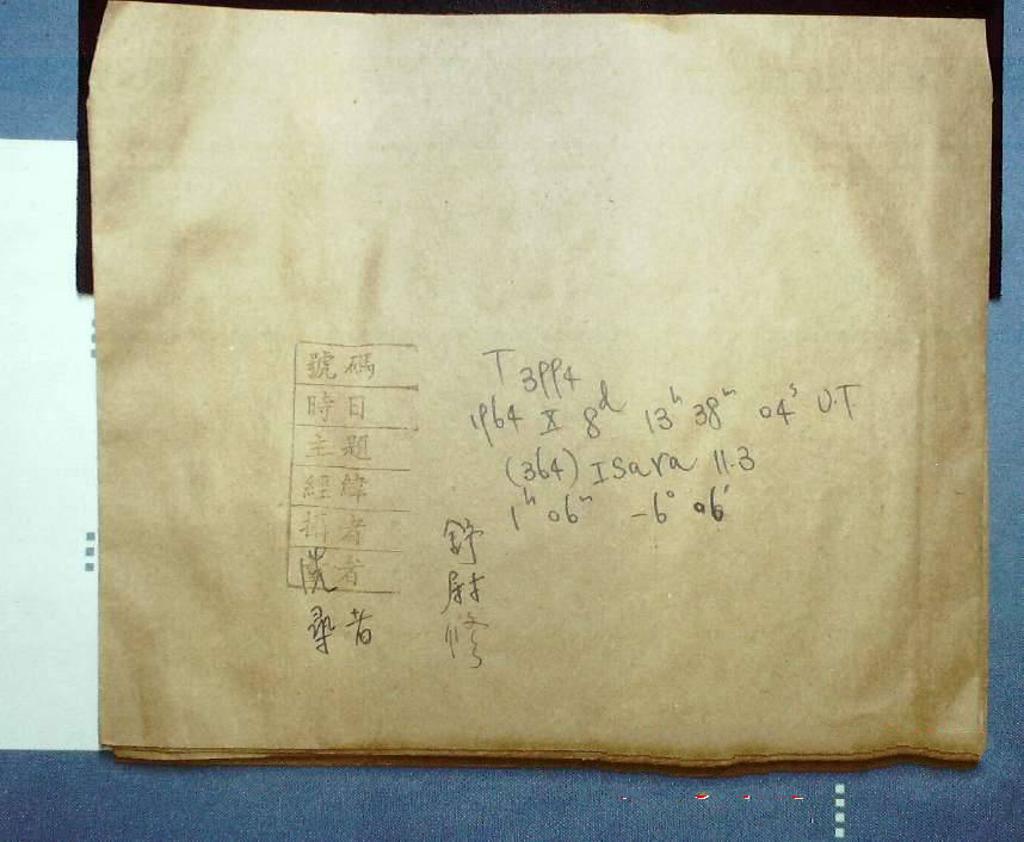 號碼
時日
主題
經緯
攝者
洗者
尋者
T 3994
1964 X 8d 13h 38m 04s U.T
(364) Isara 11.3
1h 06m -6° 06'
舒
尉
修